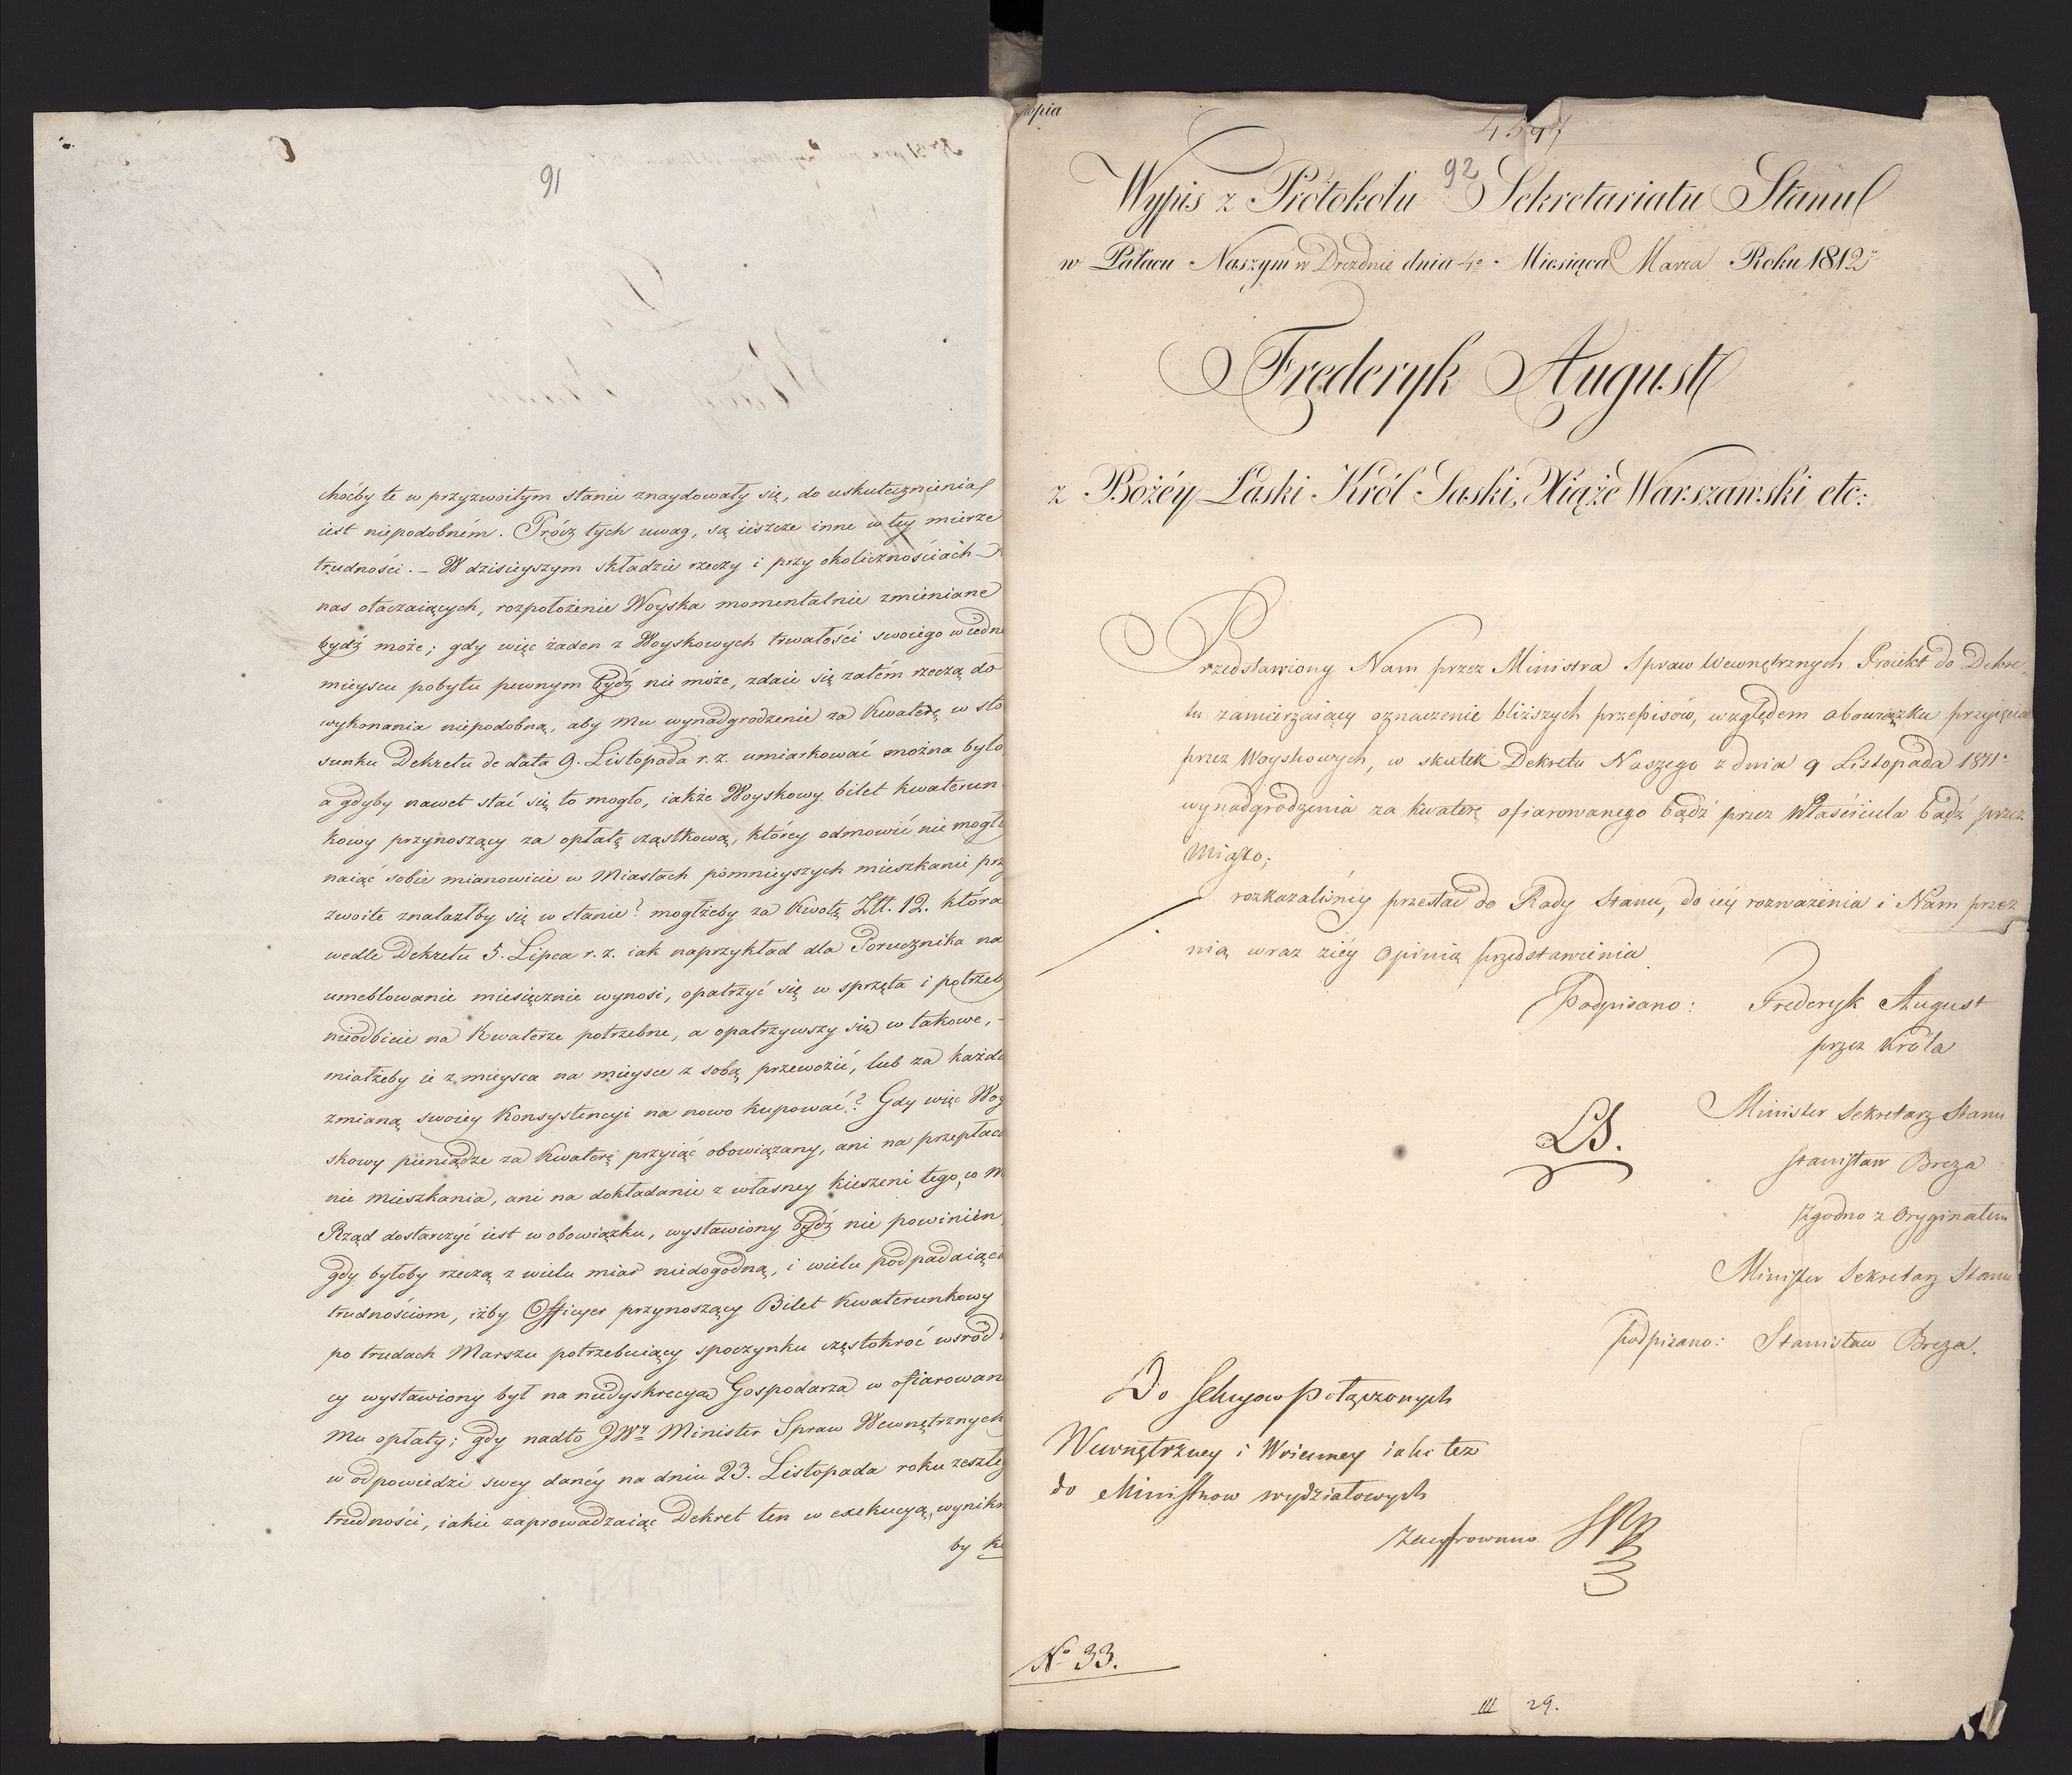 91
choćby te w przyzwoitym stanie znaydowały się, do uskutecznienia
iest niepodobném. Prócz tych uwag, są ieszcze inne w tey mierze
trudności. – W dzisieyszym składzie rzeczy i przy okolicznościach
nas otaczaiących, rozpołożenie Woyska momentalnie zmieniane
bydź może; gdy więc żaden z Woyskowych trwałości swoiego w iedn
mieyscu pobytu pewnym bydź nie może, zdaie się zatém rzeczą do
wykonania niepodobną, aby mu wynadgrodzenie za Kwaterę w sto
sunku Dekretu de data 9. Listopada r. z. umiarkować można było
a gdyby nawet stać się to mogło, iakże Woyskowy bilet kwaterun
kowy przynoszący za opłatę cząstkową, którey odmówić nie mogł
naiąć sobie mianowicie w Miastach pomnieyszych mieszkanie prz
zwoite znalazłby się w stanie? mogłżeby za Kwotę Złt. 12. która
wedle Dekretu 5. Lipca r. z. iak naprzykład dla Porucznika na
umeblowanie miesięcznie wynosi, opatrzyć się w sprzęta i potrzeb
nieodbicie na Kwaterze potrzebne, a opatrzywszy się w takowe, –
miałżeby ie z mieysca na mieysce z sobą przewozić, lub za każdą
zmianą swoiey Konsystencyi na nowo kupować? Gdy więc Woy
skowy pieniądze za Kwaterę przyiąć obowiązany, ani na przepłace
nie mieszkania, ani na dokładanie z własney kieszeni tego, co m
Rząd dostarczyć iest w obowiązku, wystawiony bydź nie powinién
gdy byłoby rzeczą z wielu miar niedogodną, i wielu podpadaiącą
trudnościom, iżby Officyer przynoszący Bilet Kwaterunkowy
po trudach Marszu potrzebuiący spoczynku częstokroć wsród
cy wystawiony był na niedyskrecyą Gospodarza w ofiarowan
mu opłaty; gdy nadto JWy Minister Spraw Wewnętrznych
w odpowiedzi swey danéy na dniu 23. Listopada roku zeszłe
trudności, iakie zaprowadzaiąc Dekret ten w exekucyą, wynikn
by
Kopia
4597
92
Wypis z Protokołu Sekretariatu Stanu
w Pałacu Naszym w Dreźdnie dnia 4o Miesiąca Marca Roku 1812o
Frederyk August
z Bożéy Łaski Król Saski, Xiąże Warszawski etc:
Przedstawiony Nam przez Ministra Spraw Wewnętrznych Proiekt do Dekre
tu zamierzaiący oznaczenie bliższych przepisów, względem obowiązku przyięcia
przez Woyskowych, w skutek Dekretu Naszego z dnia 9 Listopada 1811o
wynadgrodzenia za kwaterę ofiarowanego bądź przez Właściciela bądź przez
Miasto;
rozkazaliśmy przesłać do Rady Stanu, do iéy rozważenia i Nam przez
nią wraz z iéy opinią przedstawienia
Podpisano: Frederyk August
przez Króla
Minister Sekretarz Stanu
LS.
Stanisław Breza
Zgodno z Oryginałem
Minister Sekretarz Stanu
podpisano: Stanisław Breza.
Do Sekcyow Połączonych
Wewnętrzney i Woienney iako też
do Ministrow wydziałowych
No 33.
III 29.